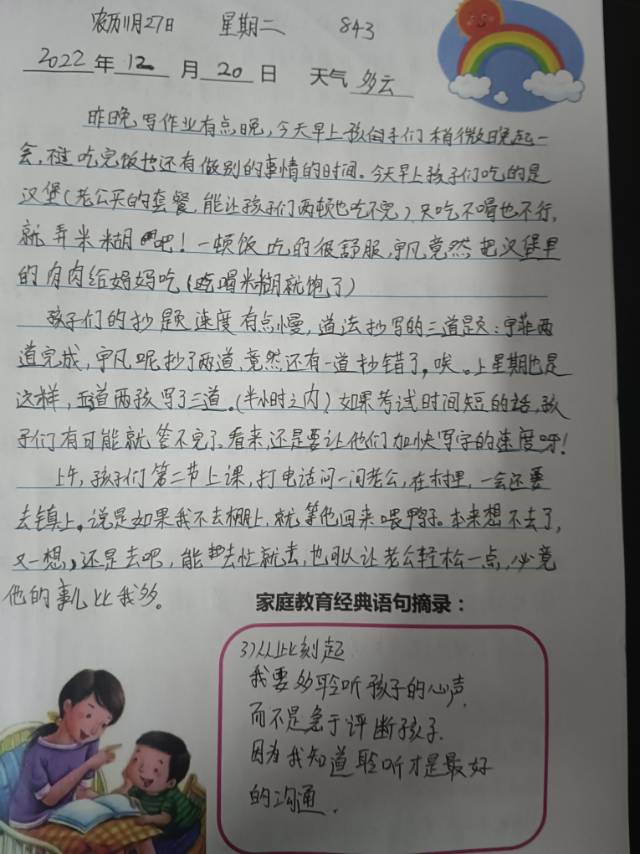 农历11月27日 星期二 843
2022年12月20日 天气 多云
昨晚写作业有点晚,今天早上孩子们稍微晚起一
会,在吃完饭也还有做别的事情的时间。今天早上孩子们吃的是
汉堡(老公买的套餐,能让孩子们两顿也吃不完)只吃不喝也不行,
就弄米糊吧!一顿饭吃的很舒服,宇凡竟然把汉堡里
的肉肉给妈妈吃(吃喝米糊就饱了)
孩子们的抄题速度有点慢,道法抄写的三道题:宇菲两
道完成,宇凡呢抄了两道,竟然还有一道抄错了。唉。上星期也是
这样,五道两孩写了三道。(半小时之内)如果考试时间短的话,孩
子们有可能就答不完了,看来,还是要让他们加快写字的速度呀!
上午,孩子们第二节上课,打电话问一问老公,在村里,一会还要
去镇上。说是如果我不去棚上,就等他回来喂鸭子。本来想不去了,
又一想,还是去吧,能去忙就去,也可以让老公轻松一点,必竟
他的事儿比我多。
家庭教育经典语句摘录:
3)从此刻起
我要多聆听孩子的心声,
而不是急于评断孩子.
因为我知道聆听才是最好
的沟通.